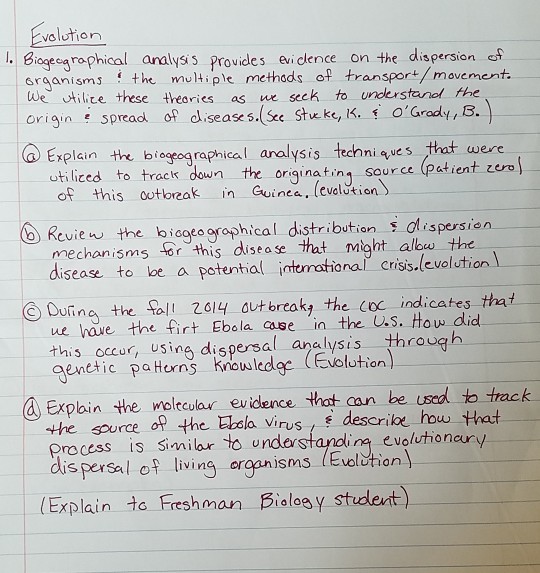 Evolution
1. Biogeographical analysis provides evidence on the dispersion of
organisms & the multiple methods of transport/movement.
We utilize these theories as we seek to understand the
origin & spread of diseases. (See Stucke, K. & O'Grady, B.)
(a) Explain the biogeographical analysis techniques that were
utilized to track down the originating source (patient zero)
of this outbreak in Guinea. (evolution)
(b) Review the biogeographical distribution & dispersion
mechanisms for this disease that might allow the
disease to be a potential international crisis. (evolution)
(c) During the fall 2014 outbreak, the CDC indicates that
we have the firt Ebola case in the U.S. How did
this occur, using dispersal analysis through
genetic patterns knowledge (Evolution)
(d) Explain the molecular evidence that can be used to track
the source of the Ebola virus, & describe how that
process is similar to understanding evolutionary
dispersal of living organisms (Evolution)
(Explain to Freshman Biology student)